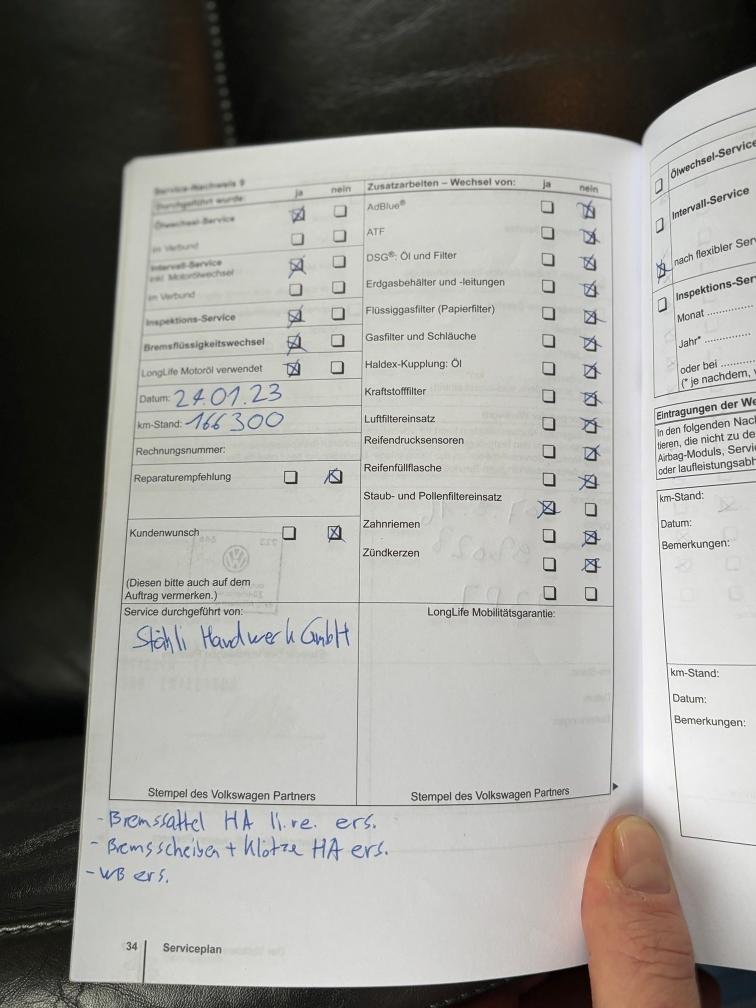 Service-Nachweis 9
Durchgeführt wurde: ja nein
Ölwechsel-Service
im Verbund
Intervall-Service
inkl. Motorölwechsel
im Verbund
Inspektions-Service
Bremsflüssigkeitswechsel
LongLife Motoröl verwendet
Datum: 24.01.23
km-Stand: 166300
Rechnungsnummer:
Reparaturempfehlung
Kundenwunsch
(Diesen bitte auch auf dem
Auftrag vermerken.)
Zusatzarbeiten – Wechsel von: ja nein
AdBlue®
ATF
DSG®: Öl und Filter
Erdgasbehälter und -leitungen
Flüssiggasfilter (Papierfilter)
Gasfilter und Schläuche
Haldex-Kupplung: Öl
Kraftstofffilter
Luftfiltereinsatz
Reifendrucksensoren
Reifenfüllflasche
Staub- und Pollenfiltereinsatz
Zahnriemen
Zündkerzen
Service durchgeführt von:
Stähli Handwerk GmbH
Stempel des Volkswagen Partners
LongLife Mobilitätsgarantie:
Stempel des Volkswagen Partners
- Bremssattel HA li.re. ers.
- Bremsscheiben + Klötze HA ers.
- WB ers.
34 Serviceplan
Ölwechsel-Service
Intervall-Service
nach flexibler Ser
Inspektions-Ser
Monat
Jahr*
oder bei
(* je nachdem,
Eintragungen der We
In den folgenden Nach
tieren, die nicht zu de
Airbag-Moduls, Servi
oder laufleistungsabh
km-Stand:
Datum:
Bemerkungen:
km-Stand:
Datum:
Bemerkungen: